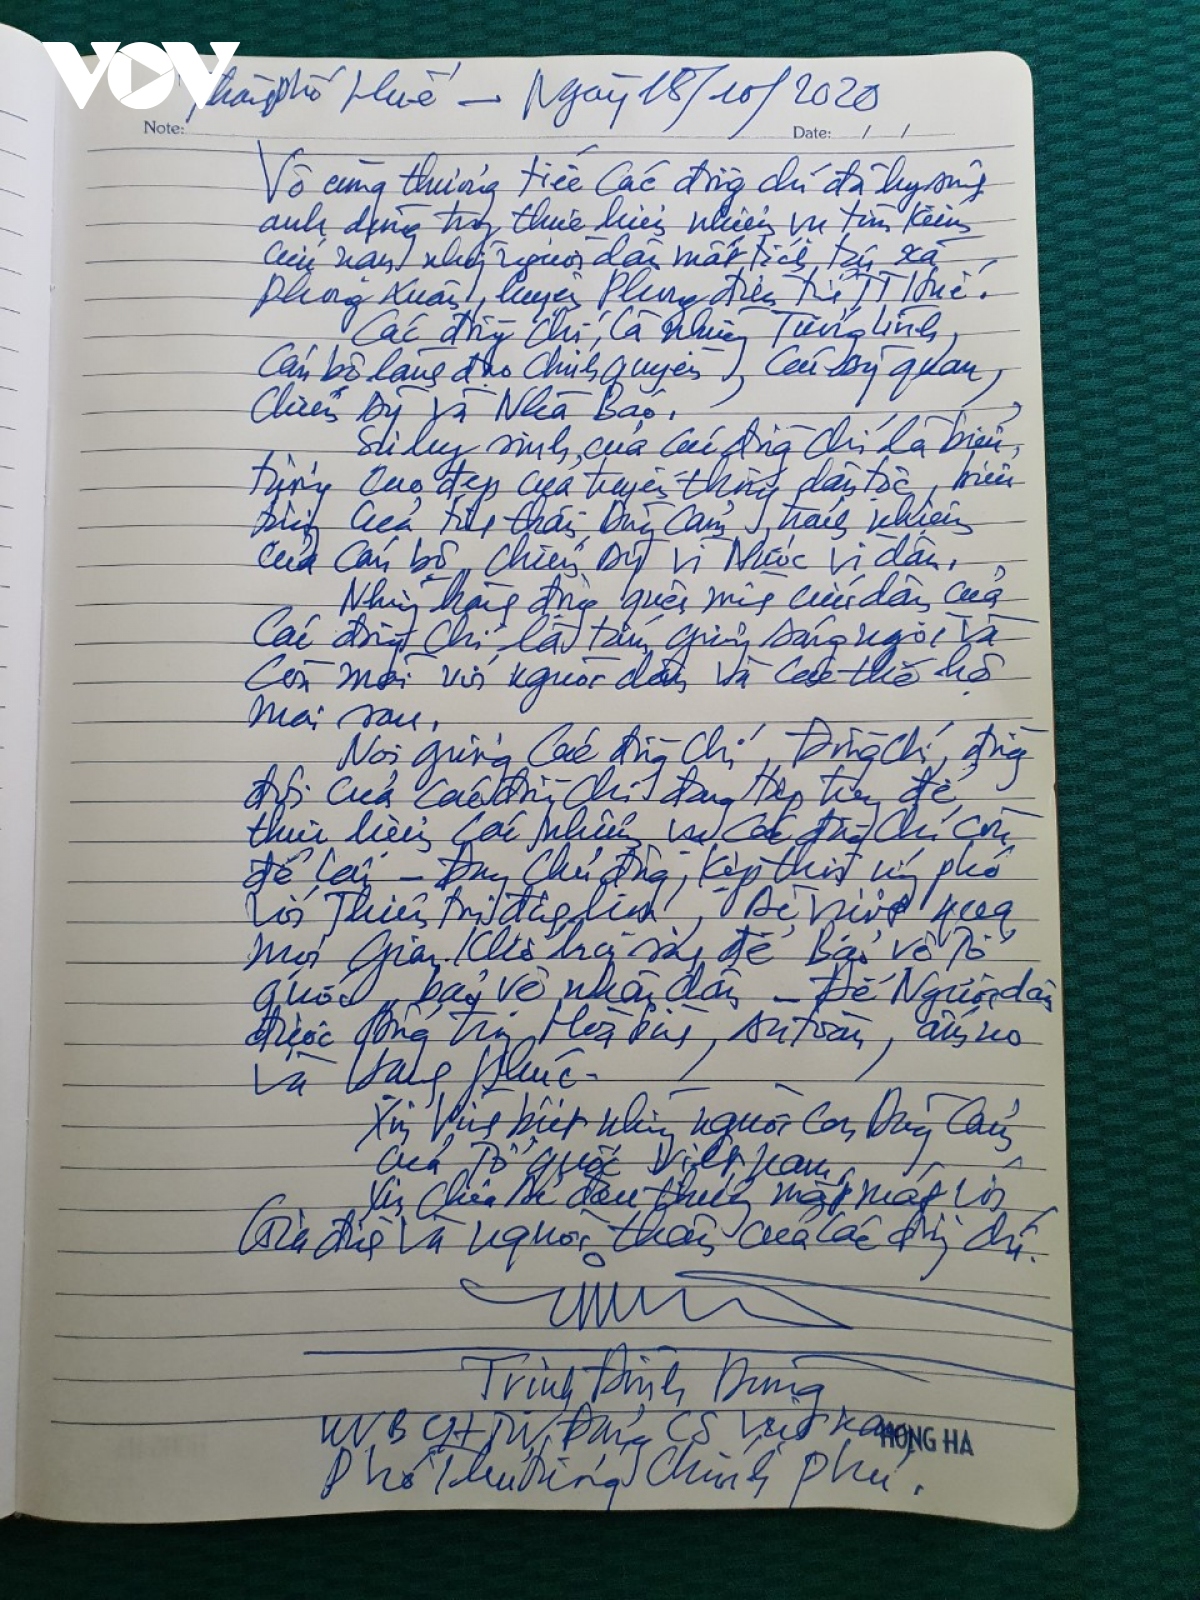 VOV
Thành phố Huế - Ngày 18/10/2020
Note:
Date: / /
Vô cùng thương tiếc các đồng chí đã hy sinh
anh dũng trong thực hiện nhiệm vụ tìm kiếm
cứu nạn những người dân mất tích tại xã
Phong Xuân, huyện Phong Điền tỉnh TT Huế.
Các đồng chí, là những Tướng lĩnh,
Cán bộ lãnh đạo chính quyền, các sỹ quan,
Chiến sỹ và Nhà Báo.
Sự hy sinh của các đồng chí là biểu
tượng cao đẹp của truyền thống dân tộc, biểu
tượng của tinh thần, dũng cảm, trách nhiệm
của cán bộ, chiến sỹ vì Nước vì dân.
Những hành động quên mình cứu dân của
Các đồng chí là tấm gương sáng ngời và
Còn mãi với người dân và các thế hệ
mai sau.
Noi gương các đồng chí, Đồng chí, đồng
đội của các đồng chí đang tiếp tục để
thực hiện các nhiệm vụ các đồng chí còn
để lại - Đang chủ động, kịp thời ứng phó
với thiên tai, để vượt qua
mọi gian khổ hy sinh để bảo vệ Tổ
quốc, bảo vệ nhân dân - Để Người dân
được sống trong Hòa bình, an toàn, ấm no
và Hạnh phúc.
Xin Vĩnh biệt những người con Dũng Cảm
của Tổ quốc Việt Nam,
Xin chia sẻ đau thương mất mát với
Gia đình và người thân của các đồng chí.
Trịnh Đình Dũng
UVBCHTW Đảng CS Việt Nam
HONG HA
Phó Thủ tướng Chính phủ.